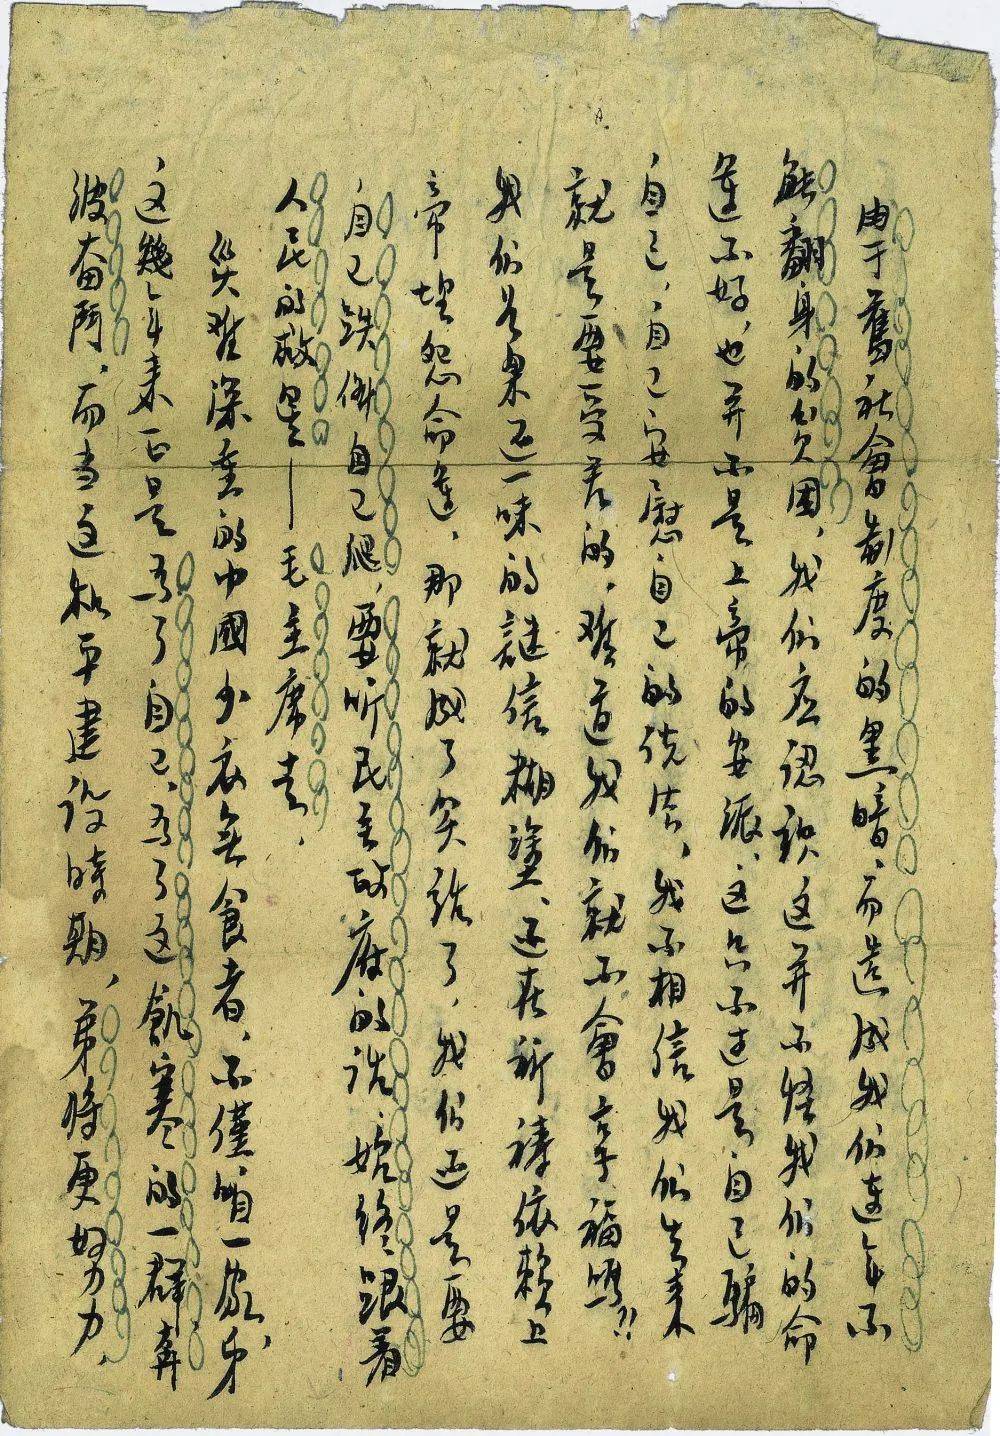 由于舊社會制度的黑暗、而造成我們連年不
能翻身的貧困，我們应認识这并不怪我們的命
運不好，也并不是上帝的安派，这只不过是自己騙
自己，自己安慰自己的说法，我不相信我們生来
就是要受苦的，难道我們就不會享福嗎!!
我們若果还一味的謎信糊塗、还在祈祷依赖上
帝埋怨命運，那就成了笑話了，我们还是要
自己跌倒自己爬，要听民主政府的話，始終跟着
人民的救星——毛主席走，
災难深重的中國少衣無食者，不僅咱一家，弟
这幾年来正是為了自己、為了这飢寒的一群，奔
波奋鬥，而当这和平建设時期，弟将更努力，